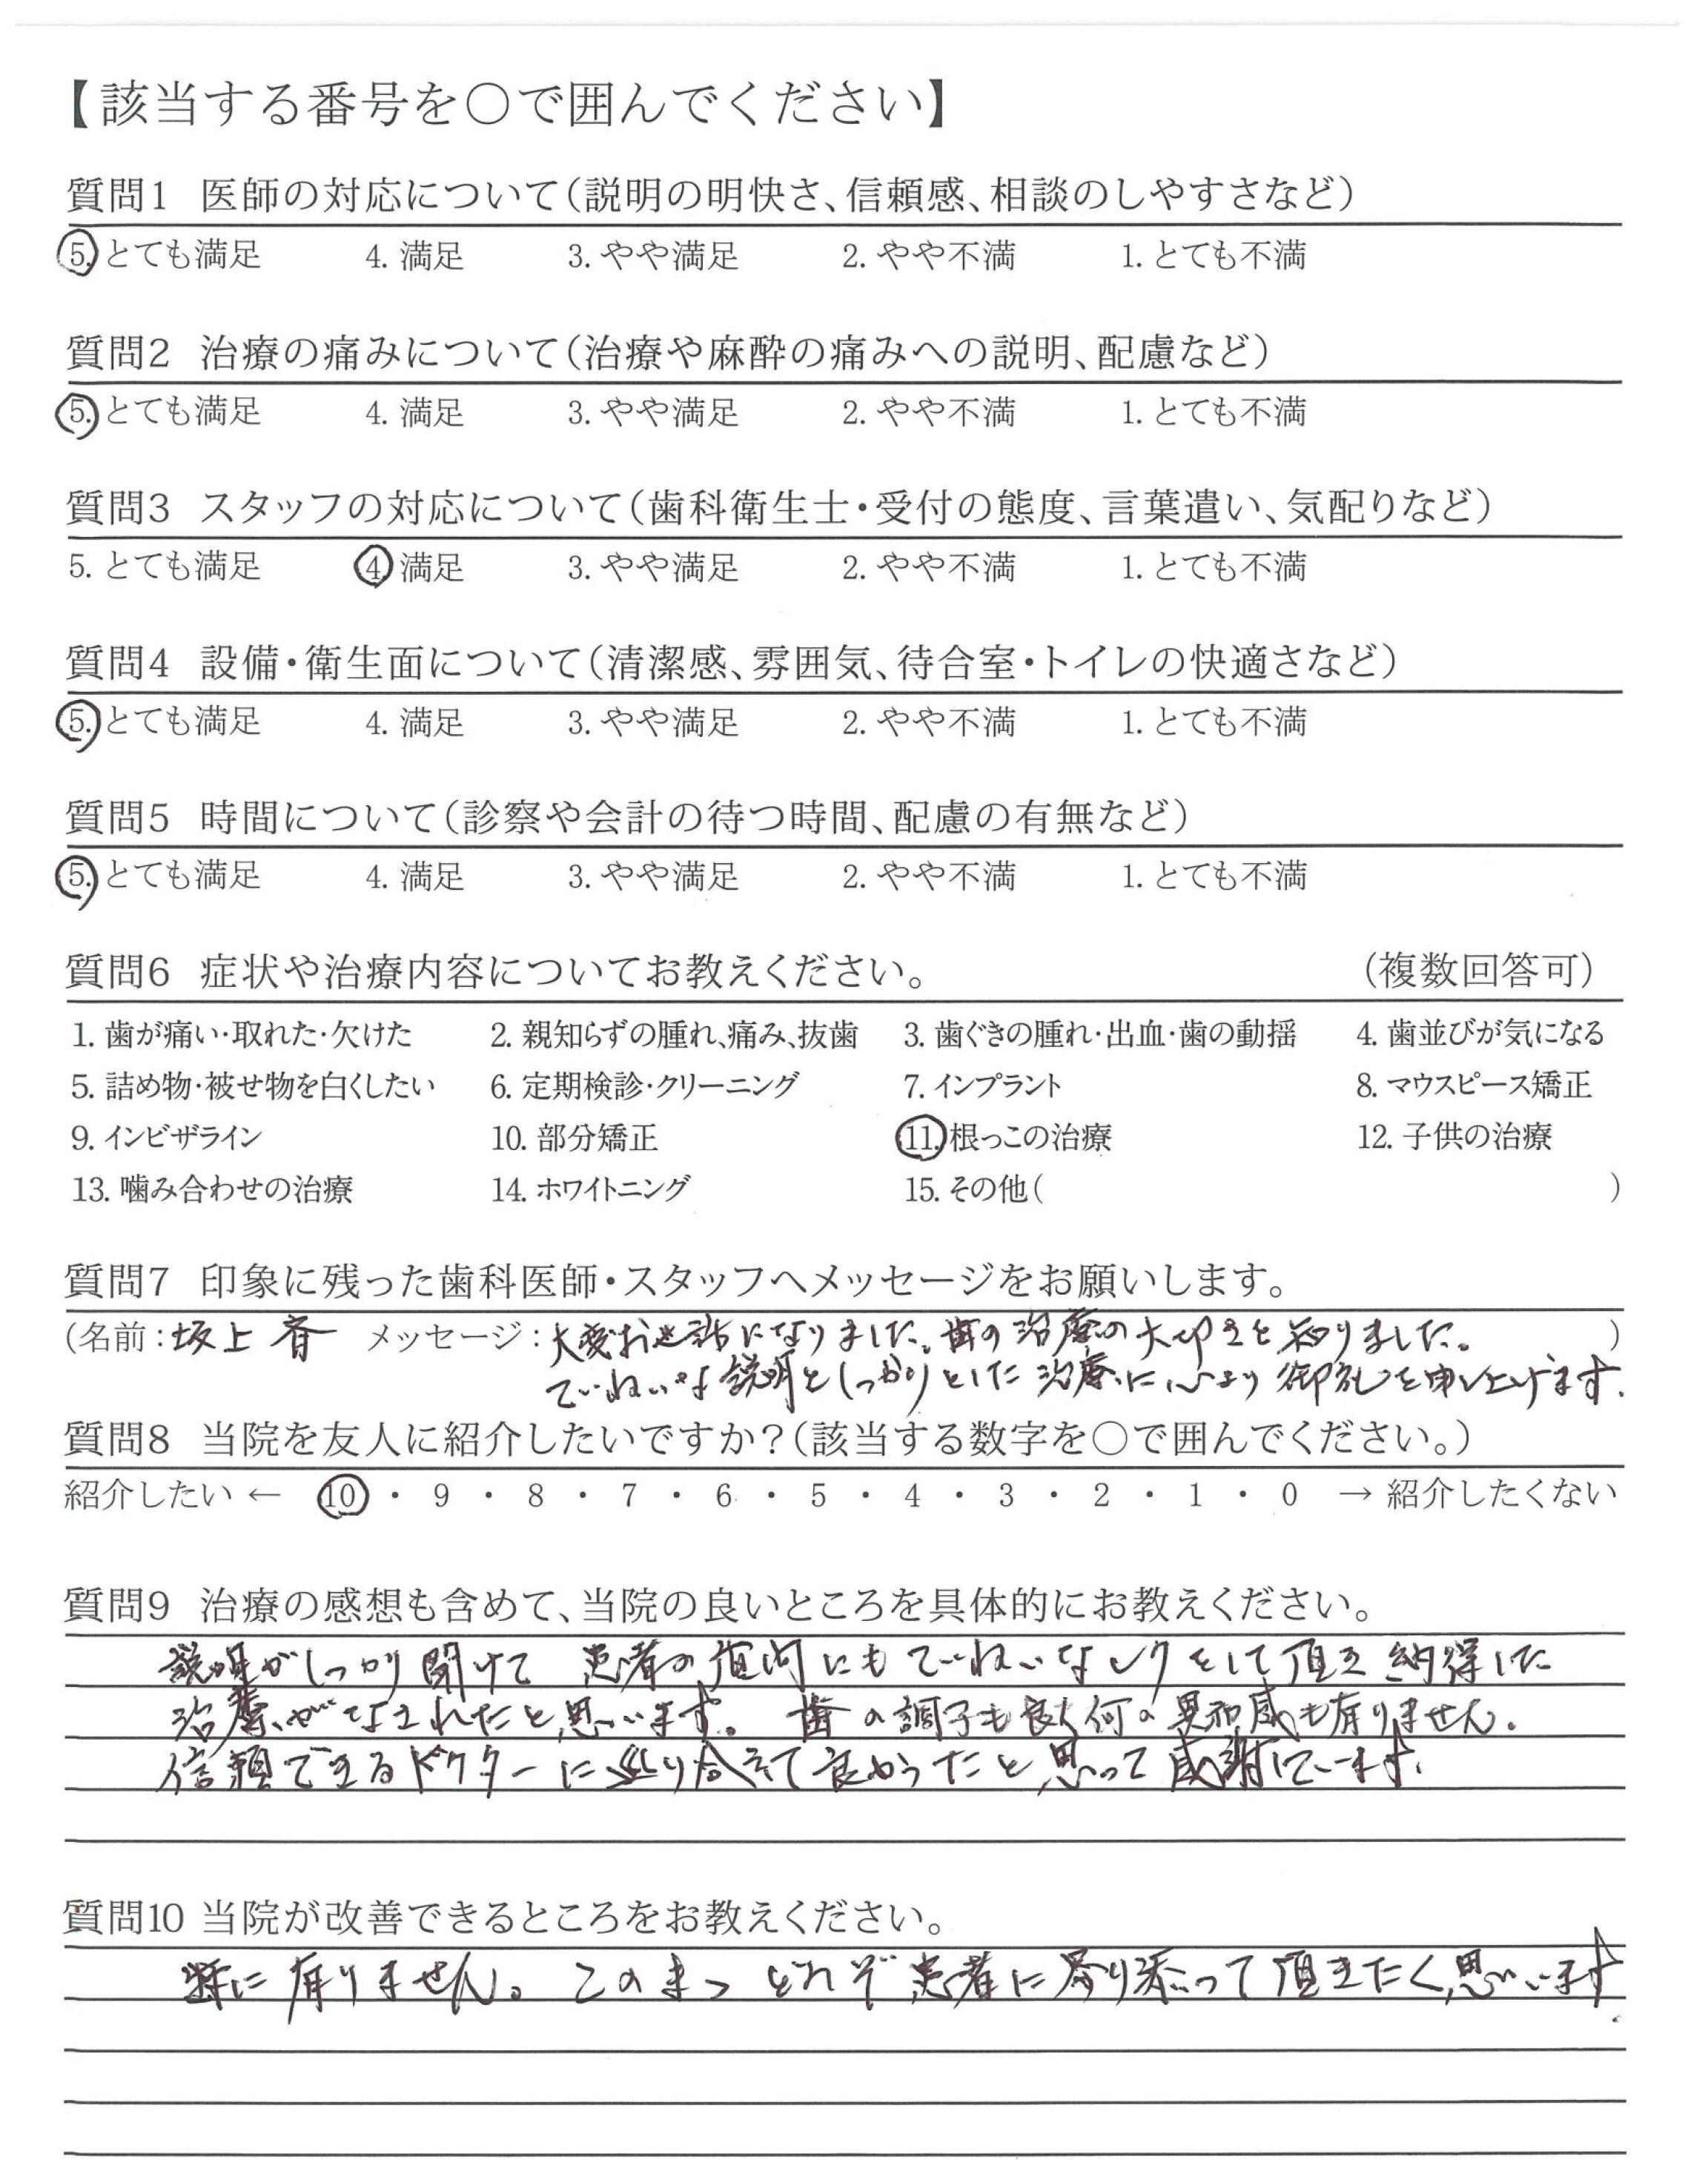 【該当する番号を○で囲んでください】
質問1 医師の対応について(説明の明快さ、信頼感、相談のしやすさなど)
5. とても満足 4. 満足 3. やや満足 2. やや不満 1. とても不満
質問2 治療の痛みについて(治療や麻酔の痛みへの説明、配慮など)
5. とても満足 4. 満足 3. やや満足 2. やや不満 1. とても不満
質問3 スタッフの対応について(歯科衛生士・受付の態度、言葉遣い、気配りなど)
5. とても満足 4. 満足 3. やや満足 2. やや不満 1. とても不満
質問4 設備・衛生面について(清潔感、雰囲気、待合室・トイレの快適さなど)
5. とても満足 4. 満足 3. やや満足 2. やや不満 1. とても不満
質問5 時間について(診察や会計の待つ時間、配慮の有無など)
5. とても満足 4. 満足 3. やや満足 2. やや不満 1. とても不満
質問6 症状や治療内容についてお教えください。 (複数回答可)
1. 歯が痛い・取れた・欠けた 2. 親知らずの腫れ、痛み、抜歯 3. 歯ぐきの腫れ・出血・歯の動揺 4. 歯並びが気になる
5. 詰め物・被せ物を白くしたい 6. 定期検診・クリーニング 7. インプラント 8. マウスピース矯正
9. インビザライン 10. 部分矯正 11. 根っこの治療 12. 子供の治療
13. 噛み合わせの治療 14. ホワイトニング 15. その他( )
質問7 印象に残った歯科医師・スタッフへメッセージをお願いします。
(名前:坂上 斉 メッセージ:大変お世話になりました。歯の治療の大切さを知りました。 )
ていねいな説明としっかりとした治療に心より御礼を申し上げます.
質問8 当院を友人に紹介したいですか?(該当する数字を○で囲んでください。)
紹介したい ← 10 ・ 9 ・ 8 ・ 7 ・ 6 ・ 5 ・ 4 ・ 3 ・ 2 ・ 1 ・ 0 → 紹介したくない
質問9 治療の感想も含めて、当院の良いところを具体的にお教えください。
説明がしっかり聞けて 患者の質問にもていねいなレクをして頂き 納得した
治療がなされたと思います。 歯の調子も良く何の異和感も有りません.
信頼できるドクターに巡り合えて良かったと思って感謝しています.
質問10 当院が改善できるところをお教えください。
特に有りません。このまゝ どうぞ患者に寄り添って頂きたく思います.